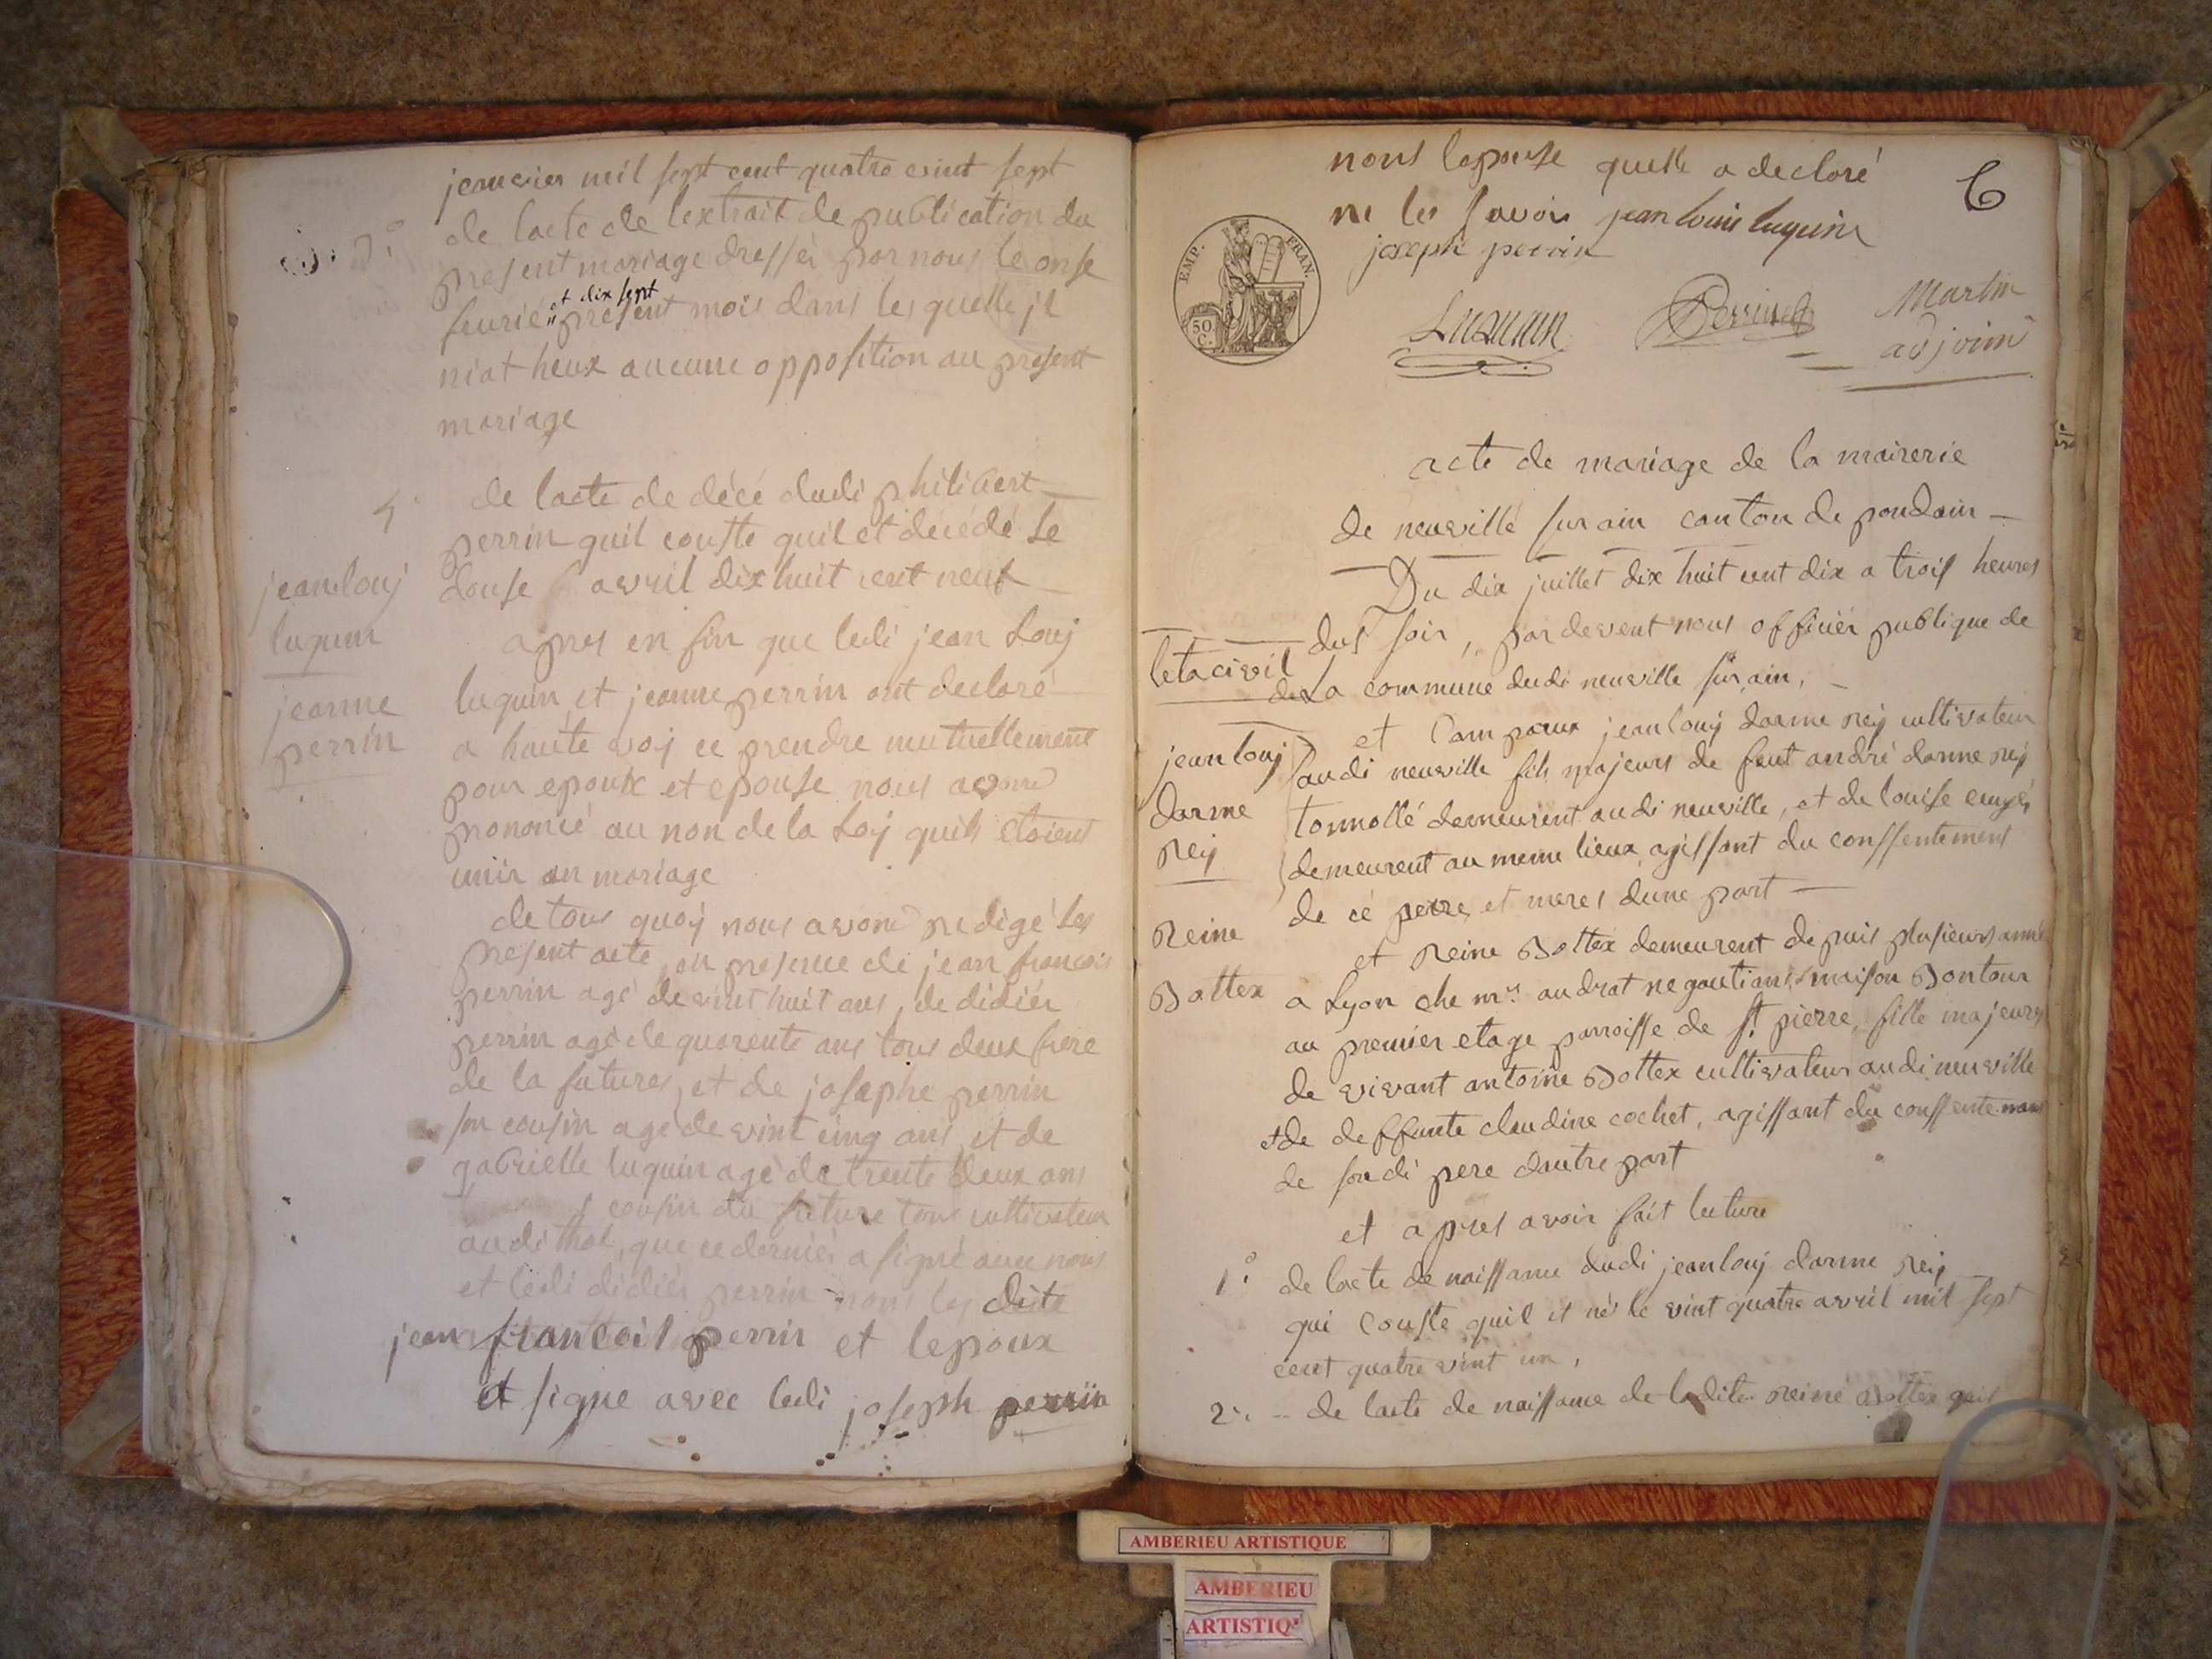 jeanvier mil sept cent quatre vint sept
3°
de lacte de lextrait de publication du
present mariage dressér par nous le onse
et dix sept
feurié present mois dans les quelle jl
niat heux aucune opposition au present
mariage
4°
de lacte de décé dudi philibert
perrin quil conste quil et décédé le
douse avril dix huit cent neuf
jean louj
luquin
jeanne
perrin
apres en fin que ledi jean Louj
luquin et jeanne perrin ont declaré
a haute voj ce prendre mutuellement
pour epoux et epouse nous avons
prononcé au non de la Loj quils etoient
unir en mariage
de tous quoj nous avons redigé les
present acte, en presence de jean francois
perrin agé de vint huit ans, de didiér
perrin agé de quarente ans tous deux frere
de la futures, et de josephe perrin
son cousin agé de vint cinq ans et de
gabrielle luquin agé de trente deux ans
cousin du future tous cultivateur
audi thol, que ce derniér a signé avec nous
et ledi didiér perrin non les dits
jean francois perrin et lepoux
et signe avec ledi joseph perrin
nons lepouse quelle a declaré
6
ne les savoir jean louis luquin
joseph perrin
EMP. FRAN.
50 C.
Luquin Perrin Martin
adjoint
acte de mariage de la mairerie
de neuville sur ain canton de pondain
Du dix juillet dix huit cent dix a trois heures
dus soir, par devent nous officiér publique de
letacivil
de La commune dudi neuville sur ain,
jean louj
darme
rey
et Comparux jean louj darme rey cultivateur
audi neuville fils majeurs de feut andré darme rey
tonnollé demeurent audi neuville, et de louise
demeurent au meme lieux agissant du conssentement
de cé perre et meres dune part
Reine
Bottex
et Reine Bottex demeurent depuis plusieurs anné
a Lyon che mrs. audrat negautians maison Bontour
au premiér etage parroisse de st pierre, fille majeures
de vivant antoine Bottex cultivateur audi neuville
et de deffunte claudine cochet, agissant du conssentemans
de sondi pere dautre part
et apres avoir fait lecture
1°
de lacte de naissance dudi jean louj darme rey
qui conste quil et né le vint quatre avril mil sept
cent quatre vint un,
2°. de lacte de naissance de ladite reine Bottex quil
AMBERIEU ARTISTIQUE
AMBERIEU
ARTISTIQ